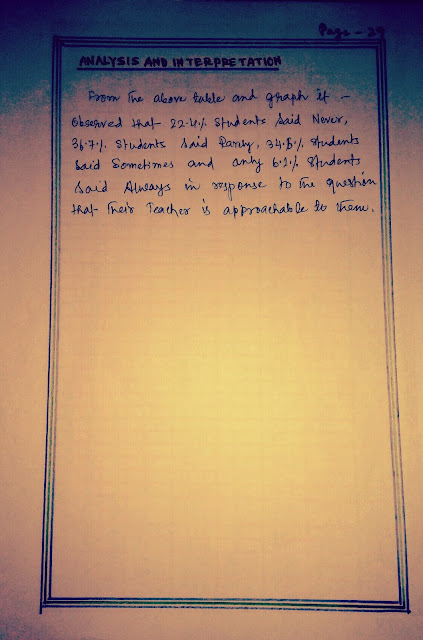 Page - 29
ANALYSIS AND INTERPRETATION
From the above table and graph it -
Observed that 22.4% Students Said Never,
36.7% Students Said Rarely, 34.6% Students
Said Sometimes and only 6.1% Students
Said Always in response to the question
that Their Teacher is approachable to them.